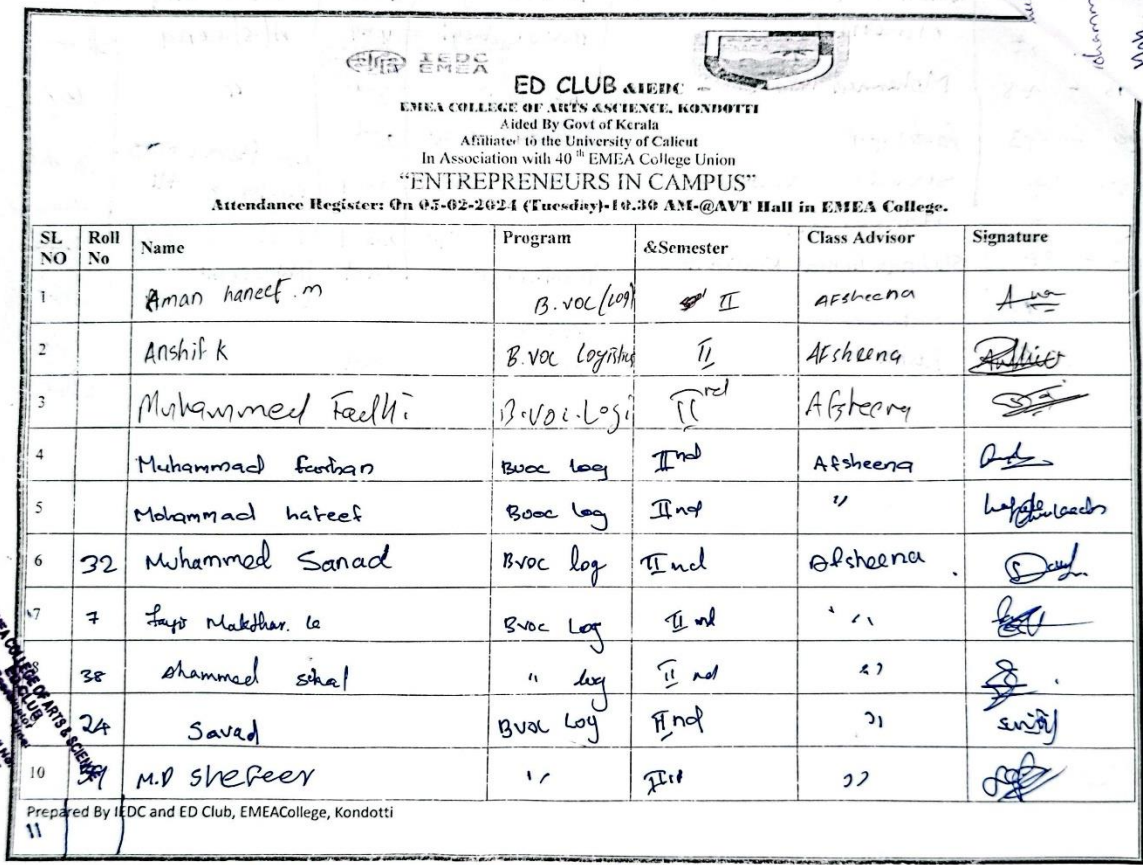 IEDC
EMEA
ED CLUB &IEDC
EMEA COLLEGE OF ARTS &SCIENCE, KONDOTTI
Aided By Govt of Kerala
Affiliated to the University of Calicut
In Association with 40 th EMEA College Union
"ENTREPRENEURS IN CAMPUS"
Attendance Register: On 05-02-2024 (Tuesday)-10.30 AM-@AVT Hall in EMEA College.
SL NO Roll No Name Program &Semester Class Advisor Signature
1 Aman haneef.m B.voc/(Log) II Afsheena
2 Anshif K B.voc Logistics II Afsheena
3 Muhammed Fadhi B.voc.Logi II rd Afsheena
4 Muhammad farhan Bvoc log IInd Afsheena
5 Mohammad hateef Bvoc log IInd "
6 32 Muhammed Sanad Bvoc log IInd Afsheena
7 7 Bvoc Log IInd "
38 " log IInd "
24 Savad Bvoc Log IInd "
10 M.P Shefeer " "
Prepared By IEDC and ED Club, EMEACollege, Kondotti
11
EMEA COLLEGE OF ARTS & SCIENCE
ED CLUB